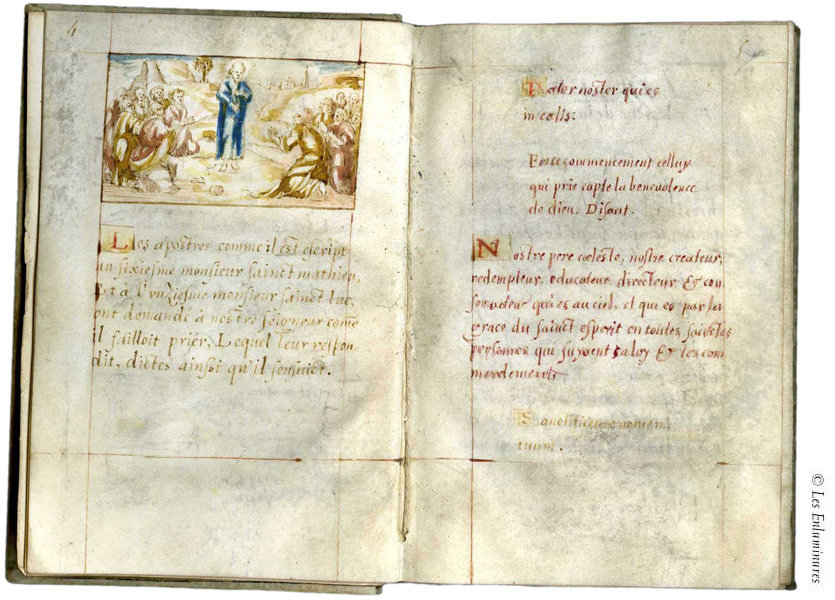 4
Les apostres comme il est escript
au sixiesme monsieur sainct mathieu,
Et a l'onziesme monsieur sainct luc,
ont demandé a nostre seigneur come
il failloit prier. Lequel leur respon
dit, dictes ainsi qu'il sensuict.
5
Pater noster qui es
in cœlis:
En ce commencement celluy
qui prie capte la benevolence
de dieu. Disant.
Nostre pere cœleste, nostre createur,
redempteur, educateur, directeur, & con
servateur qui es au ciel, et qui es par la
grace du sainct esperit en toutes sainctes
personnes qui suyvent ta loy & tes com
mandemens.
Sanctificetur nomen
tuum.
© Les Enluminures